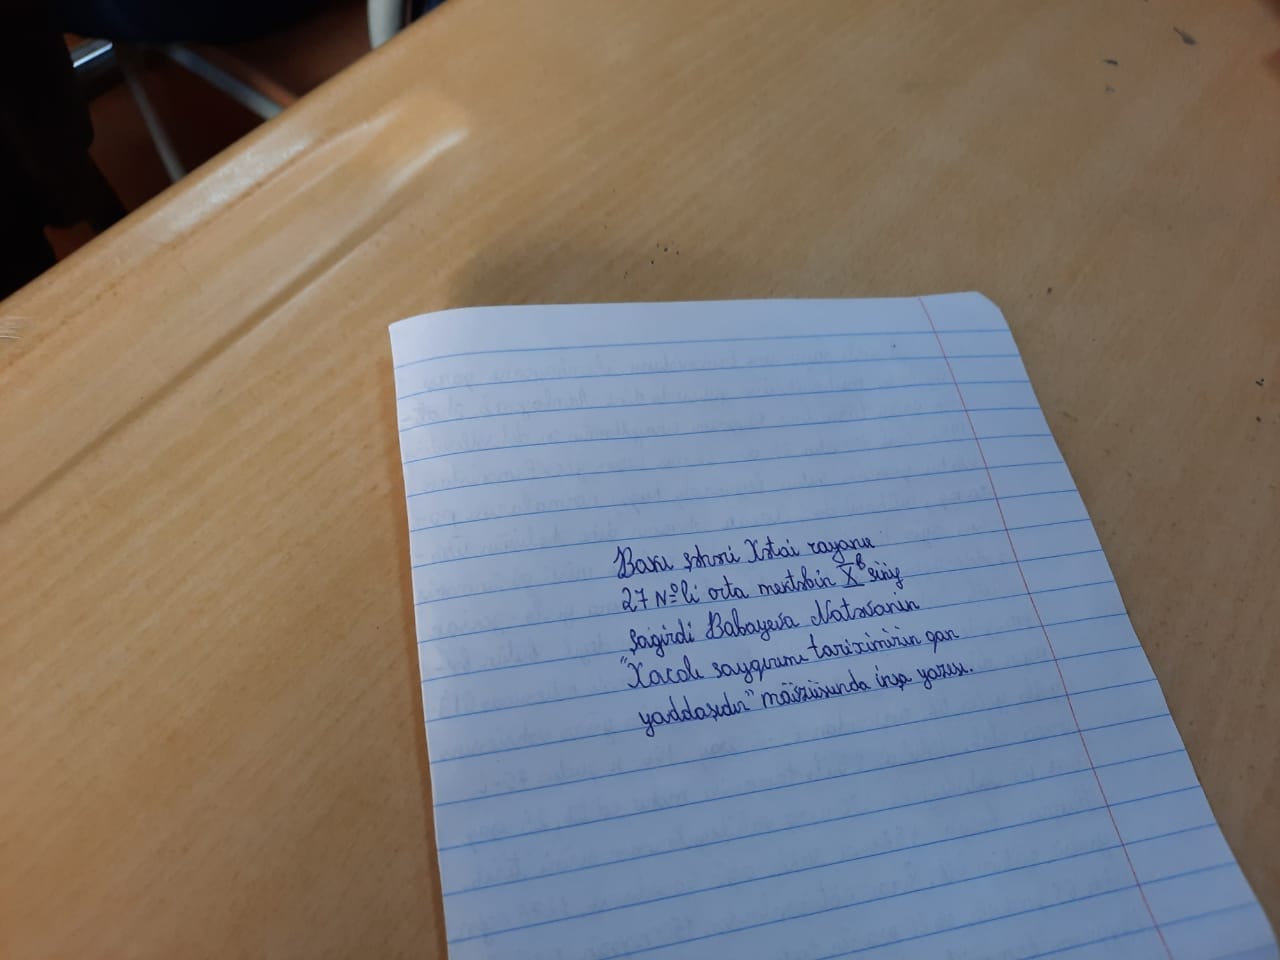 Bakı şəhəri Xətai rayonu
27 №-li orta məktəbin X ᵇ sinif
şagirdi Babayeva Natəvanın
"Xocalı soyqırımı tariximizin qan
yaddaşıdır" mövzusunda inşa yazısı.